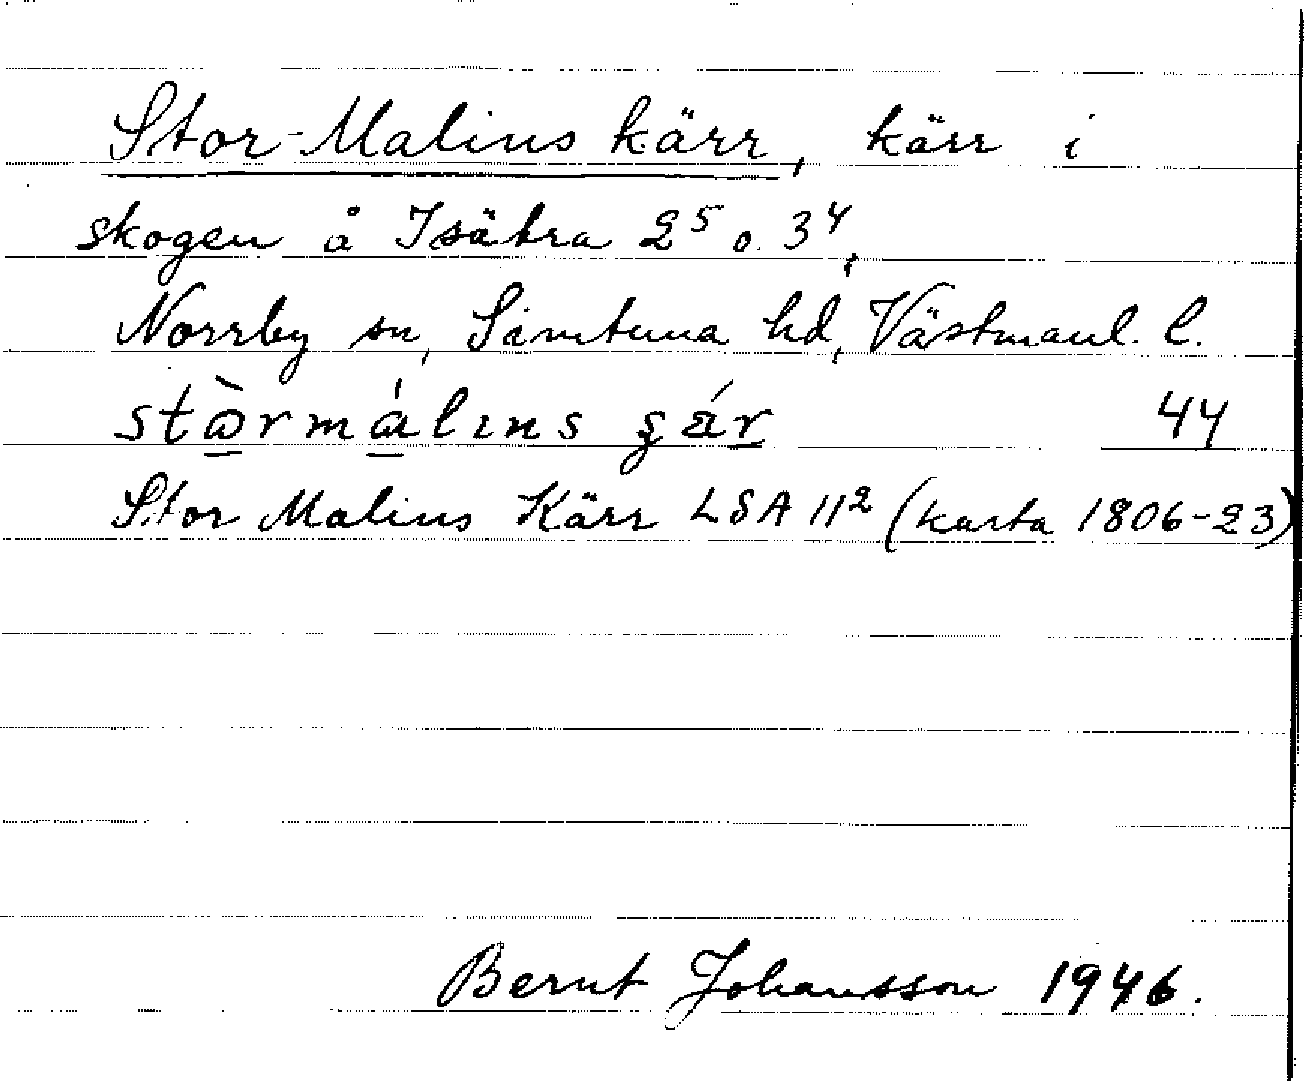 Stor-Malins kärr, kärr i
skogen å Isätra 2⁵ o. 3⁴,
Norrby sn, Simtuna hd, Västmanl. l.
stɷ̀rmálɪns
44
Stor Malins Kärr LSA 11² (karta 1806-23)
Bernt Johansson 1946.